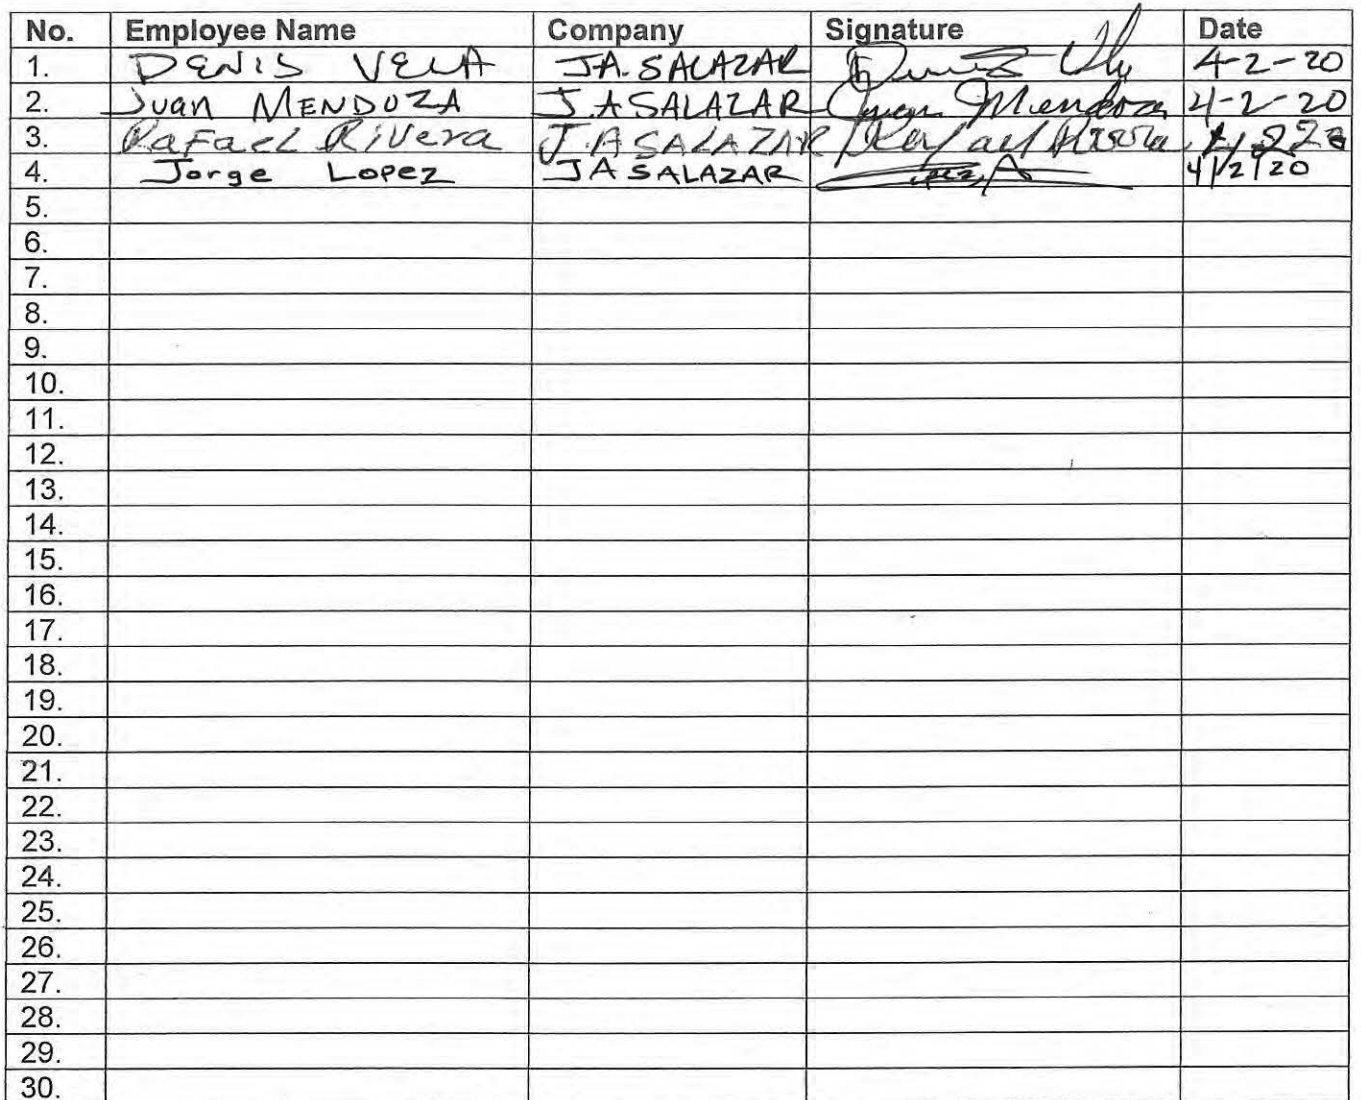 No. Employee Name Company Signature Date
1. DENIS VELA JA. SALAZAR 4-2-20
2. Juan MENDOZA J. A SALAZAR Juan Mendoza 4-2-20
3. Rafael Rivera J. A SALAZAR Rafael Rivera
4. Jorge Lopez JA SALAZAR 4/2/20
5.
6.
7.
8.
9.
10.
11.
12.
13.
14.
15.
16.
17.
18.
19.
20.
21.
22.
23.
24.
25.
26.
27.
28.
29.
30.